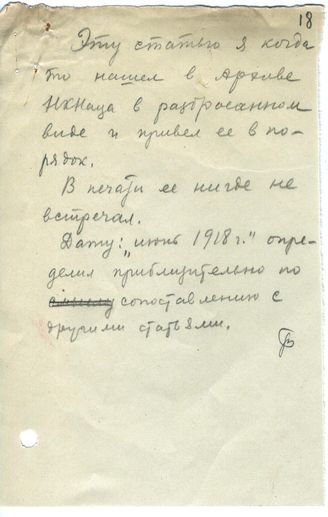 18
Эту статью я когда
то нашел в Архиве
НКНаца в разбросанном
виде и привел ее в по-
рядок.
В печати ее нигде не
встречал.
Дату: "июнь 1918 г." опре-
делил приблизительно по
сопоставлению с
другими статьями.